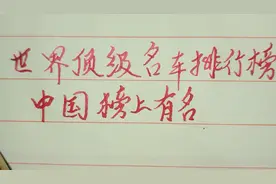 世界顶级名车排行榜
中国榜上有名